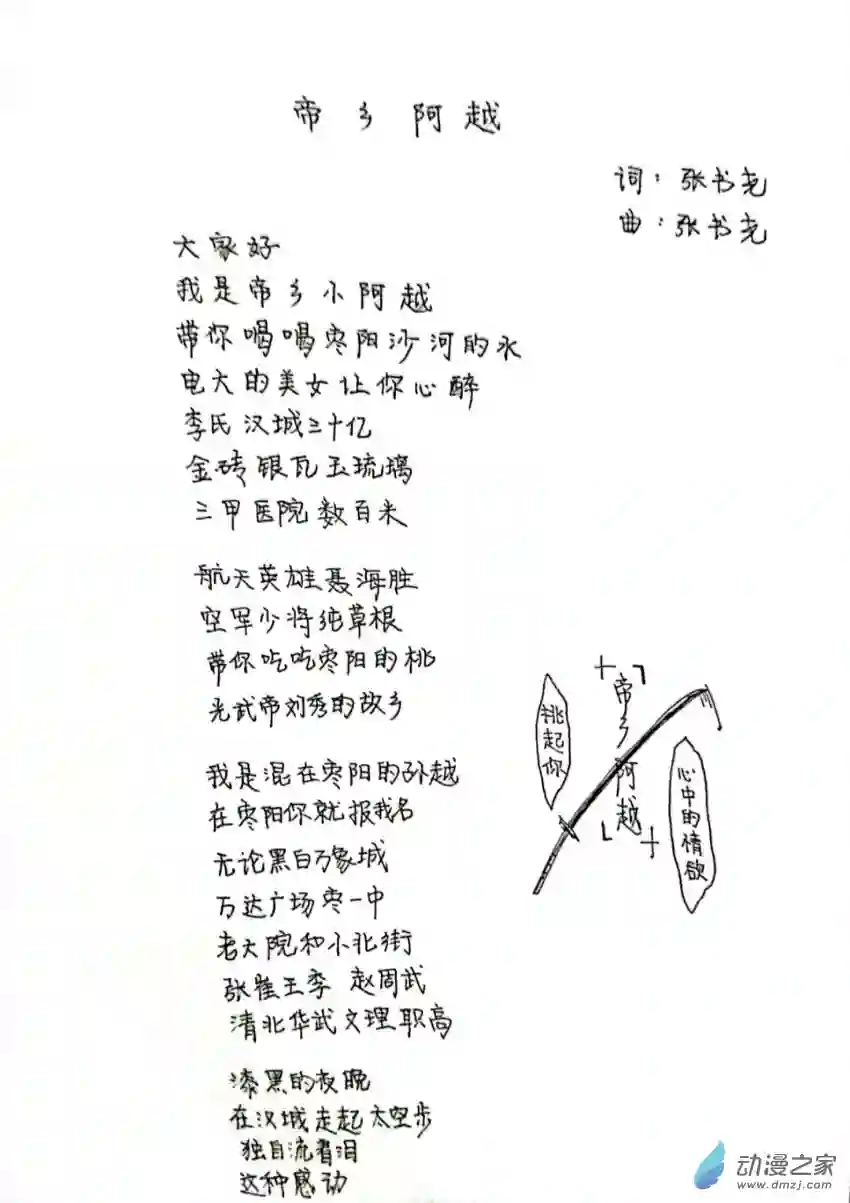 帝乡阿越
词：张书尧
曲：张书尧
大家好
我是帝乡小阿越
带你喝喝枣阳沙河的水
电大的美女让你心醉
李氏汉城三十亿
金砖银瓦玉琉璃
三甲医院数百米
航天英雄聂海胜
空军少将纯草根
带你吃吃枣阳的桃
光武帝刘秀的故乡
我是混在枣阳的孙越
在枣阳你就报我名
无论黑白万象城
万达广场枣一中
老大院和小北街
张崔王李 赵周武
清北华武文理职高
漆黑的夜晚
在汉城走起太空步
独自流着泪
这种感动
挑起你
帝乡阿越
心中的情欲
动漫之家
www.dmzj.com